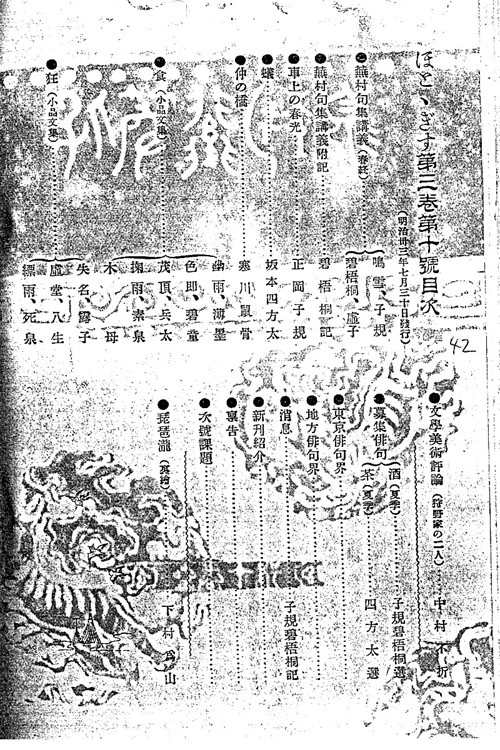 ほとゝぎす第三卷第十號目次
(明治卅三年七月三十日發行)
●蕪村句集講義(春終)……{鳴雪、子規
碧梧桐、虛子
●蕪村句集講義附記……碧梧桐記
●車上の春光……正岡子規
●蟻……坂本四方太
●仲の橋……寒川鼠骨
●食(小品文集)……{幽雨、薄墨
色卽、碧童
茂頂、兵太
掬雨、素泉
木母
●狂(小品文集)……{失名、露子
虛堂、八生
縹雨、死泉
42
●文學美術評論(狩野家の二人)……中村不折
●募集俳句{酒(夏季)……子規碧梧桐選
茶(夏季)……四方太選
●東京俳句界
●地方俳句界
●消息……子規碧梧桐記
●新刊紹介
●稟告
●次號課題
●琵琶瀧(英繪)……下村爲山